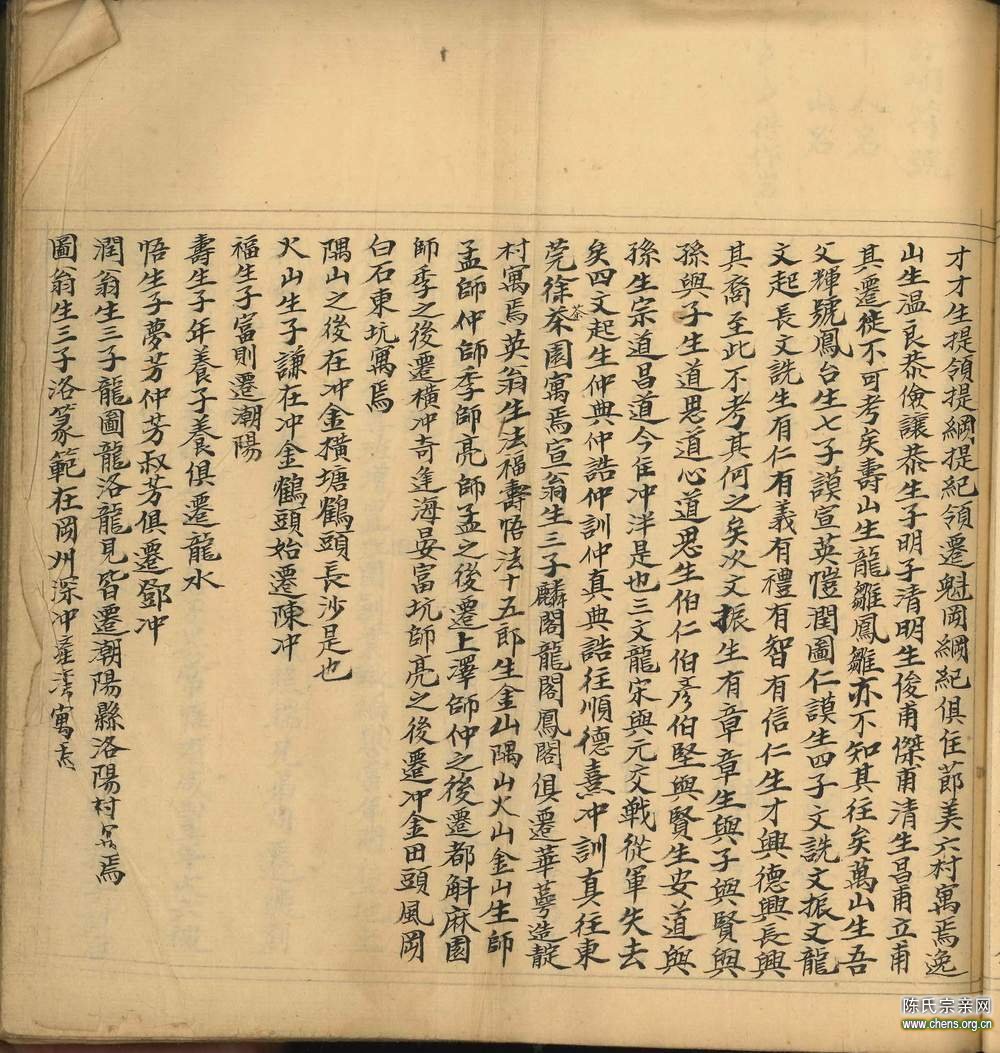 才才生提領提綱提紀領遷魁岡綱紀俱住莭美六村寓焉逸
山生温良恭儉讓恭生子明子清明生俊甫傑甫清生昌甫立甫
其遷徙不可考矣壽山生龍雛鳳雛亦不知其往矣萬山生吾
父輝號鳳台生七子謨宣英愷潤圖仁謨生四子文詵文振文龍
文起長文詵生有仁有義有禮有智有信仁生才興德興長興
其裔至此不考其何之矣次文振生有章章生興子興賢興
孫興子生道思道心道思生伯仁伯彥伯堅興賢生安道興
孫生宗道昌道今住冲洋是也三文龍宋與元交戰從軍失去
矣四文起生仲典仲誥仲訓仲真典誥往順德熹冲訓真往東
莞徐茶園寓焉宣翁生三子麟閣龍閣鳳閣俱遷華萼造靛
茶
村寓焉英翁生法福壽悟法十五郎生金山隅山火山金山生師
孟師仲師季師亮師孟之後遷上澤師仲之後遷都斛麻園
師季之後遷横冲奇逢海晏富坑師亮之後遷冲金田頭風岡
白石東坑寓焉
隅山之後在冲金横塘鶴頭長沙是也
火山生子謙在冲金鶴頭始遷陳冲
福生子富則遷潮陽
壽生子年養子養俱遷龍水
悟生子夢芳仲芳叔芳俱遷鄧冲
潤翁生三子龍圖龍洛龍見皆遷潮陽縣洛陽村寓焉
圖翁生三子洛篆範在岡州深冲寓焉
陈氏宗亲网
www.chens.org.cn